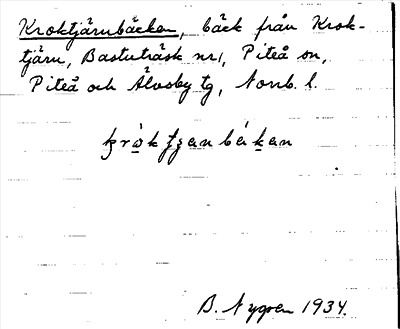 Kroktjärnbäcken, bäck från Krok-
tjärn, Bastuträsk nr 1, Piteå sn,
Piteå och Älvsby tg, Norrb. l.
B. Nygren 1934.